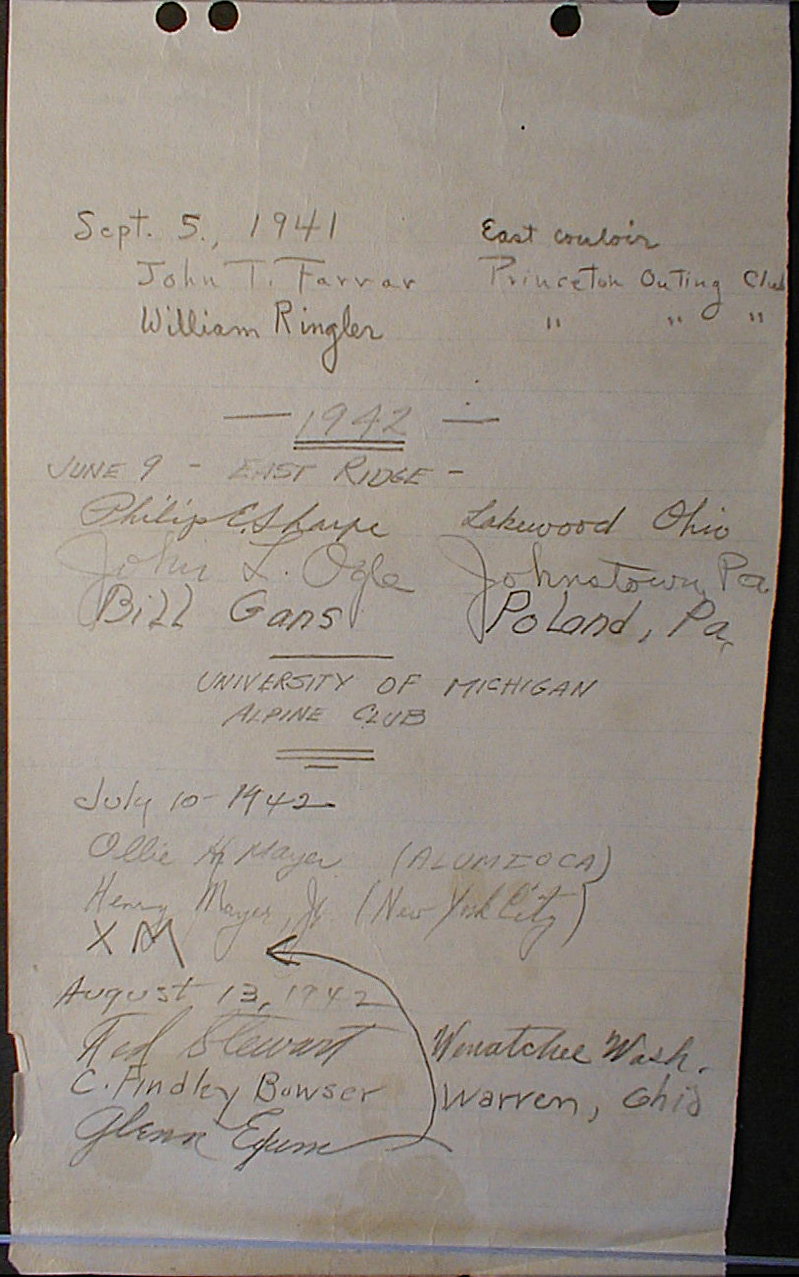 Sept. 5., 1941 East couloir
John T. Farrar Princeton Outing Club
William Ringler " " "
— 1942 —
JUNE 9 - EAST RIDGE -
Philip C. Sharpe Lakewood Ohio
John L. Ogle Johnstown, Pa
Bill Gans Poland, Pa.
UNIVERSITY OF MICHIGAN
ALPINE CLUB
July 10 - 1942
Ollie Mayer
Henry Mayer, Jr. (New York City)
X M
August 13, 1942
Ted Stewart Wenatchee Wash.
C. Findley Bowser Warren, Ohio
Glenn Exum